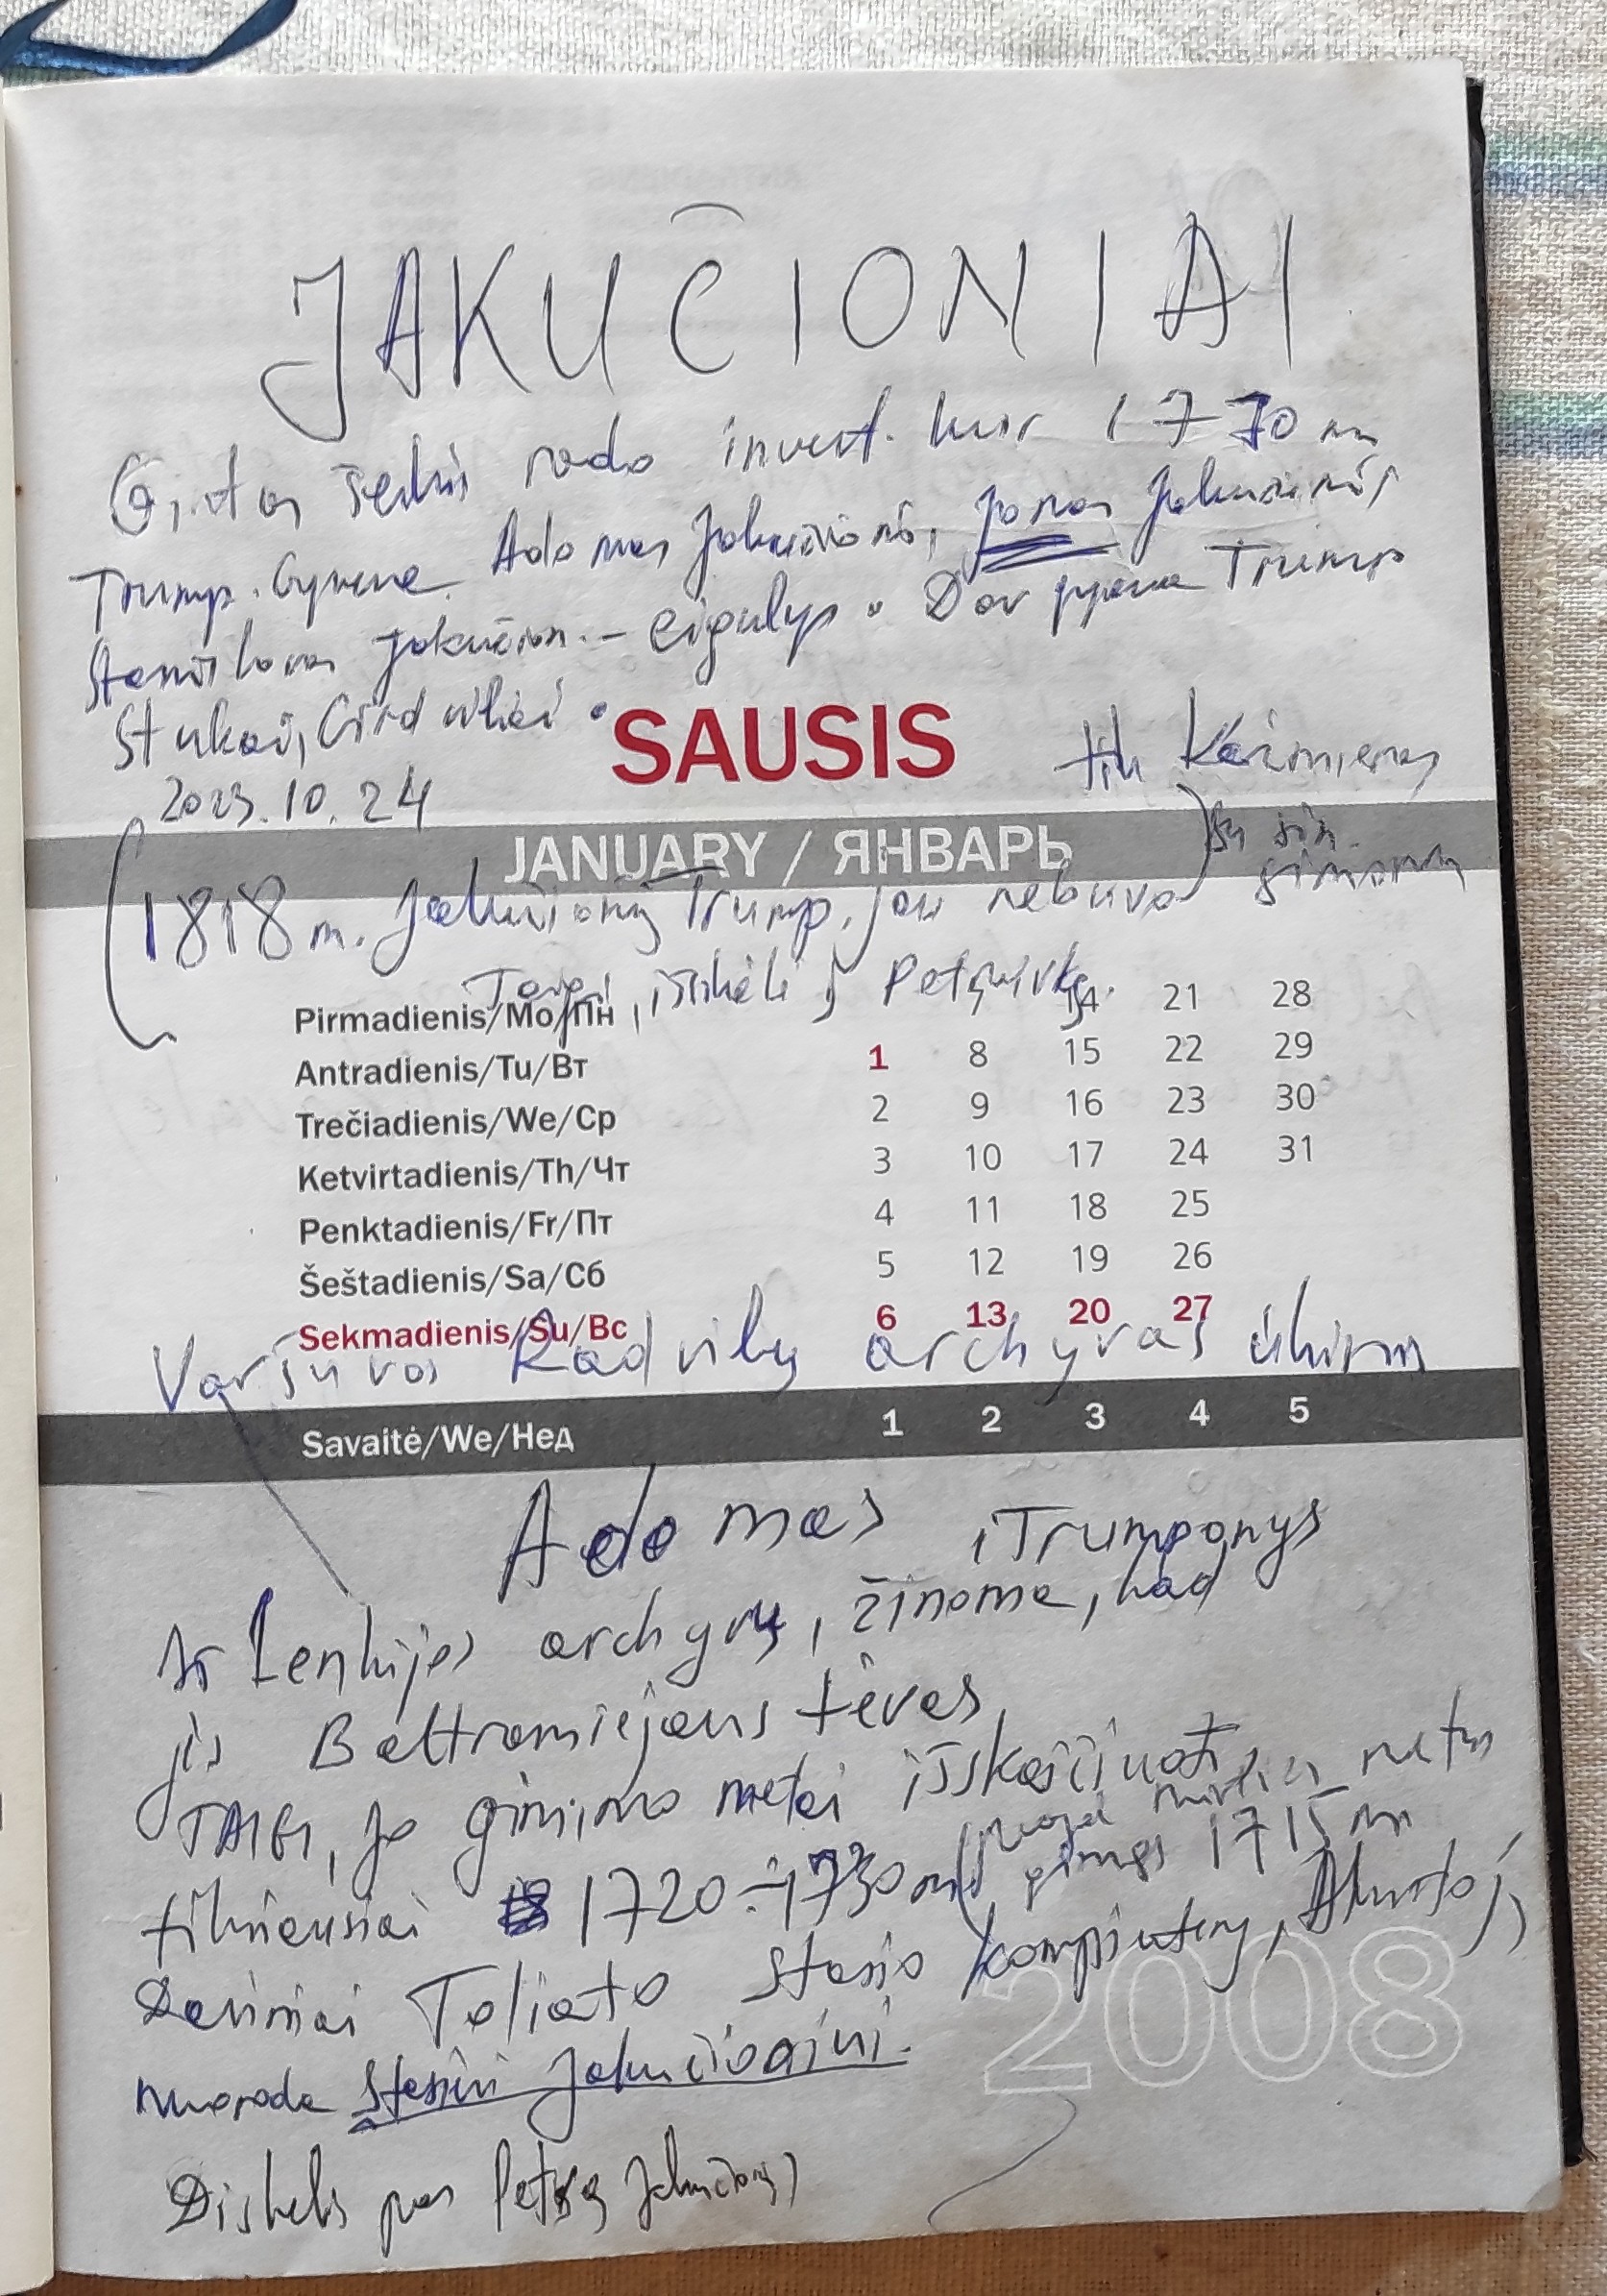 JAKUČIONIAI
Gintas Šeškis rado invent. kur 1770 m
Trump. Gyvena Adomas Jakučionis, Jonas Jakučionis,
Stanislovas Jakučion. – eigulys. Dar gyvena Trump
Stukai, Girdviliai.
2023.10.24
SAUSIS
tik Kazimieras
su sūn.
Simonu
JANUARY / ЯНВАРЬ
1818 m. Jakučionių Trump. jau nebuvo
Taigi, išsikėlė į Petkūnišk.
Pirmadienis/Mo/Пн 14 21 28
Antradienis/Tu/Вт 1 8 15 22 29
Trečiadienis/We/Ср 2 9 16 23 30
Ketvirtadienis/Th/Чт 3 10 17 24 31
Penktadienis/Fr/Пт 4 11 18 25
Šeštadienis/Sa/Сб 5 12 19 26
Sekmadienis/Su/Вс 6 13 20 27
Varšuvos Radvilų archyvas
Savaitė/We/Нед 1 2 3 4 5
Adomas iš Trumponys
Iš Lenkijos archyvų, žinoma, kad
jis Baltramiejaus tėvas
TAIGI, jo gimimo metai išskaičiuoti
tikriausiai 1720÷1730 m (pagal mirties metus
gimęs 1715 m
Daviniai Toliato Stasio kompiutery,
nuoroda Stasiui Jakučioniui.
Diskelis pas Petrą Jakučionį
2008